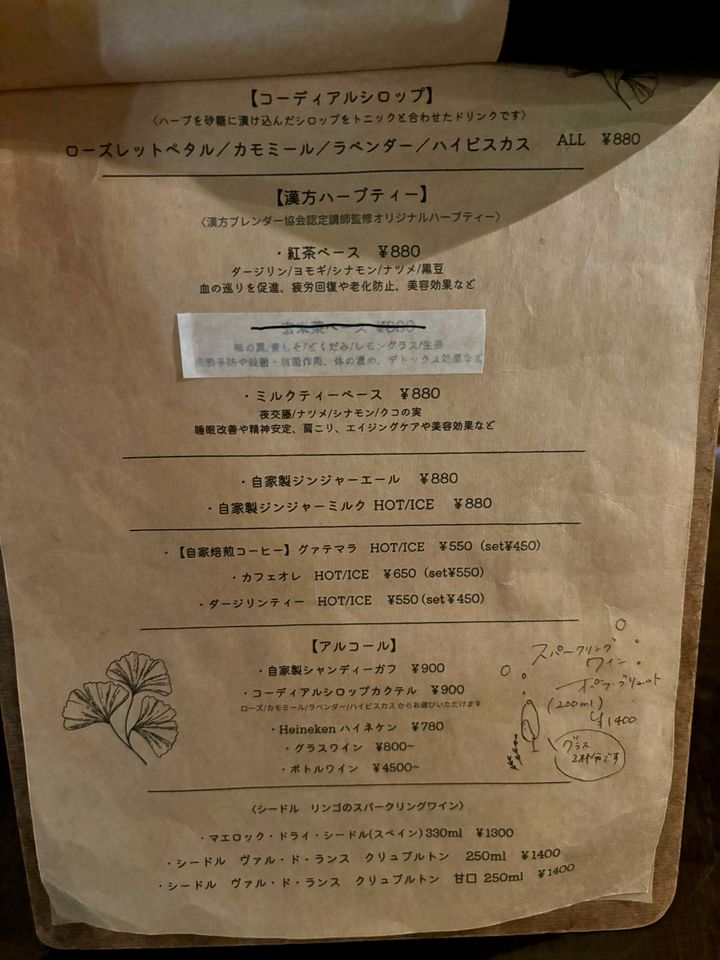 【コーディアルシロップ】
〈ハーブを砂糖に漬け込んだシロップをトニックと合わせたドリンクです〉
ローズレットペタル／カモミール／ラベンダー／ハイビスカス ALL ¥880
【漢方ハーブティー】
〈漢方ブレンダー協会認定講師監修オリジナルハーブティー〉
・紅茶ベース ¥880
ダージリン/ヨモギ/シナモン/ナツメ/黒豆
血の巡りを促進、疲労回復や老化防止、美容効果など
玄米茶ベース ¥880
柿の葉/青しそ/どくだみ/レモングラス/生姜
予防や殺菌・抗菌作用、体の温め、デトックス効果など
・ミルクティーベース ¥880
夜交藤/ナツメ/シナモン/クコの実
睡眠改善や精神安定、肩こり、エイジングケアや美容効果など
・自家製ジンジャーエール ¥880
・自家製ジンジャーミルク HOT/ICE ¥880
・【自家焙煎コーヒー】グァテマラ HOT/ICE ¥550 (set¥450)
・カフェオレ HOT/ICE ¥650 (set¥550)
・ダージリンティー HOT/ICE ¥550 (set¥450)
【アルコール】
・自家製シャンディーガフ ¥900
・コーディアルシロップカクテル ¥900
ローズ/カモミール/ラベンダー/ハイビスカスからお選びいただけます
・Heineken ハイネケン ¥780
・グラスワイン ¥800~
・ボトルワイン ¥4500~
スパークリング
ワイン
ポプ・ブリュット
(200ml)
¥1400
グラス
2杯分です
〈シードル リンゴのスパークリングワイン〉
・マエロック・ドライ・シードル(スペイン) 330ml ¥1300
・シードル ヴァル・ド・ランス クリュブルトン 250ml ¥1400
・シードル ヴァル・ド・ランス クリュブルトン 甘口 250ml ¥1400